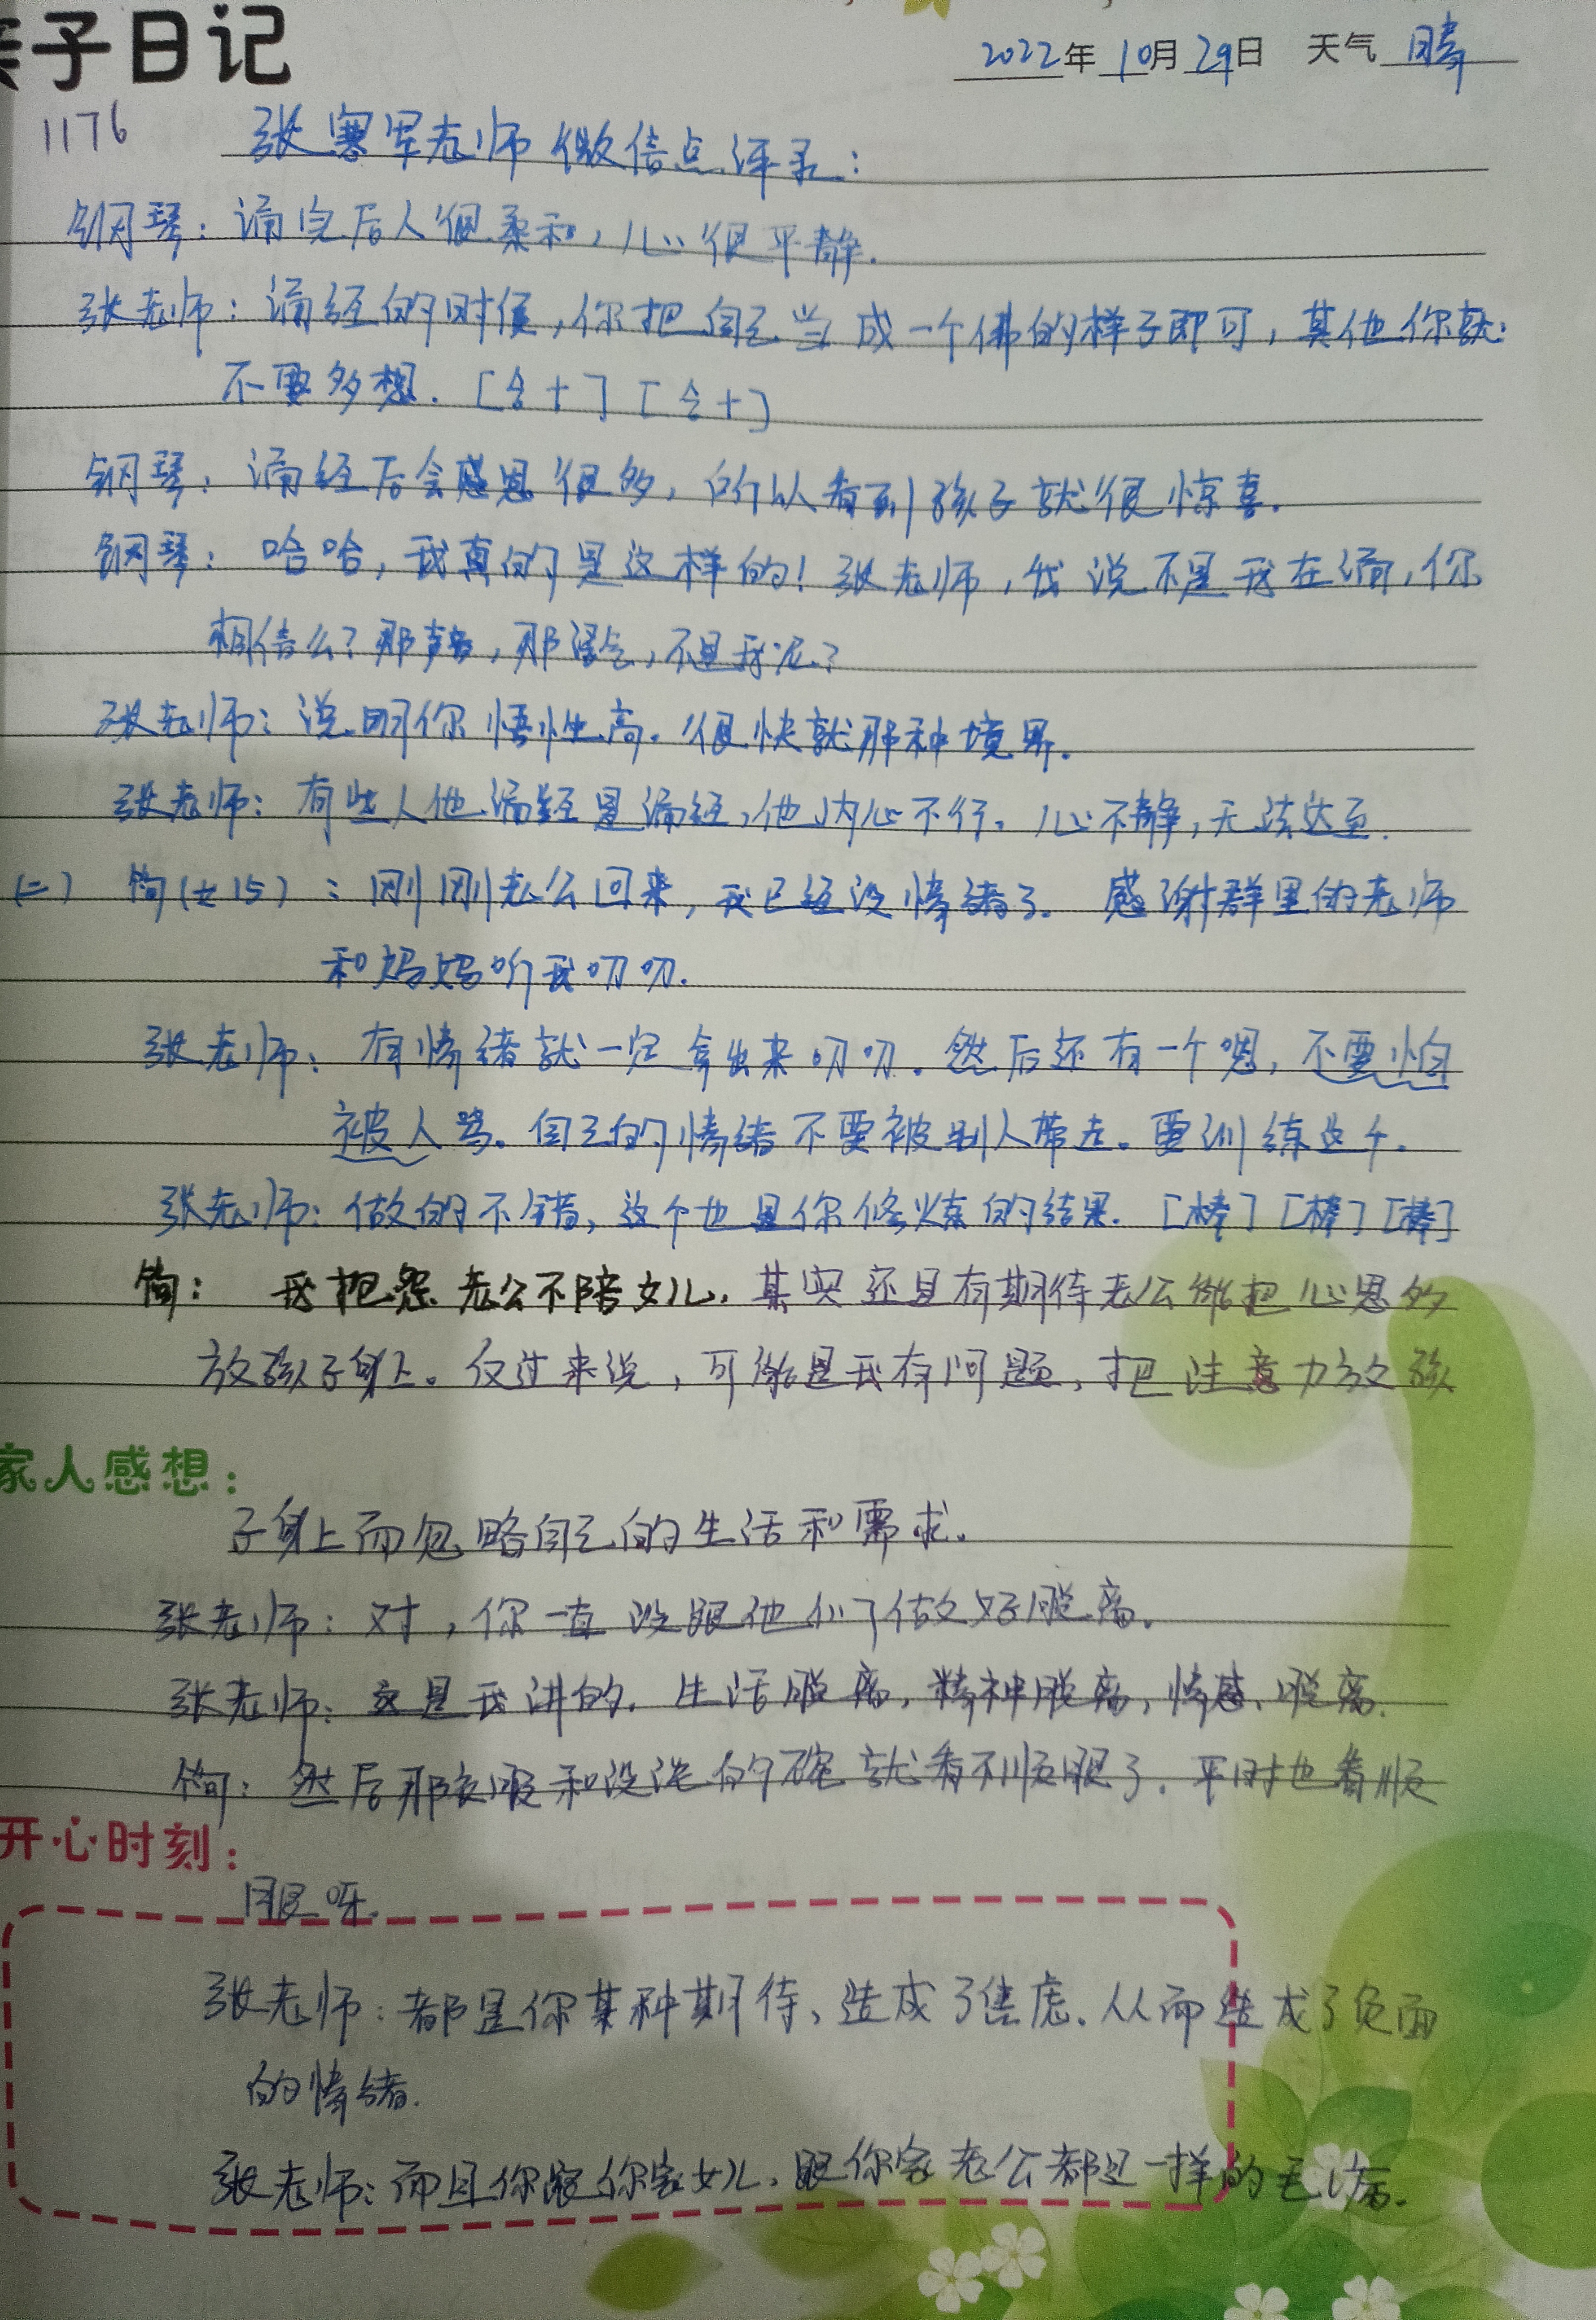 亲子日记
2022年10月29日 天气 晴
1176
张寒军老师微信点评录:
钢琴:诵完后人很柔和,心很平静.
张老师:诵经的时候,你把自己当成一个佛的样子即可,其他你就
不要多想.[合十][合十]
钢琴:诵经后会感恩很多,所以看到孩子就很惊喜.
钢琴:哈哈,我真的是这样的!张老师,我说不是我在诵,你
相信么?那声音,那语气,不是我呢?
张老师:说明你悟性高.很快就那种境界.
张老师:有些人他诵经是诵经,他内心不行.心不静,无法达到.
(二) 钩(女15):刚刚老公回来,我已经没情绪了.感谢群里的老师
和妈妈听我叨叨.
张老师:有情绪就一定拿出来叨叨.然后还有一个嗯,不要怕
被人骂.自己的情绪不要被别人带走.要训练这个.
张老师:做的不错,这个也是你修炼的结果.[棒][棒][棒]
钩: 我抱怨老公不陪女儿.其实还是有期待老公能把心思多
放孩子身上.反过来说,可能是我有问题,把注意力放孩
家人感想:
子身上而忽略自己的生活和需求.
张老师:对,你一直没跟他们做好脱离.
张老师:这是我讲的.生活脱离,精神脱离,情感、脱离.
钩:然后那衣服和没洗的碗就看不顺眼了.平时也看顺
开心时刻:
眼呀.
张老师:都是你某种期待、造成了焦虑.从而造成了负面
的情绪.
张老师:而且你跟你家女儿.跟你家老公都是一样的毛病.